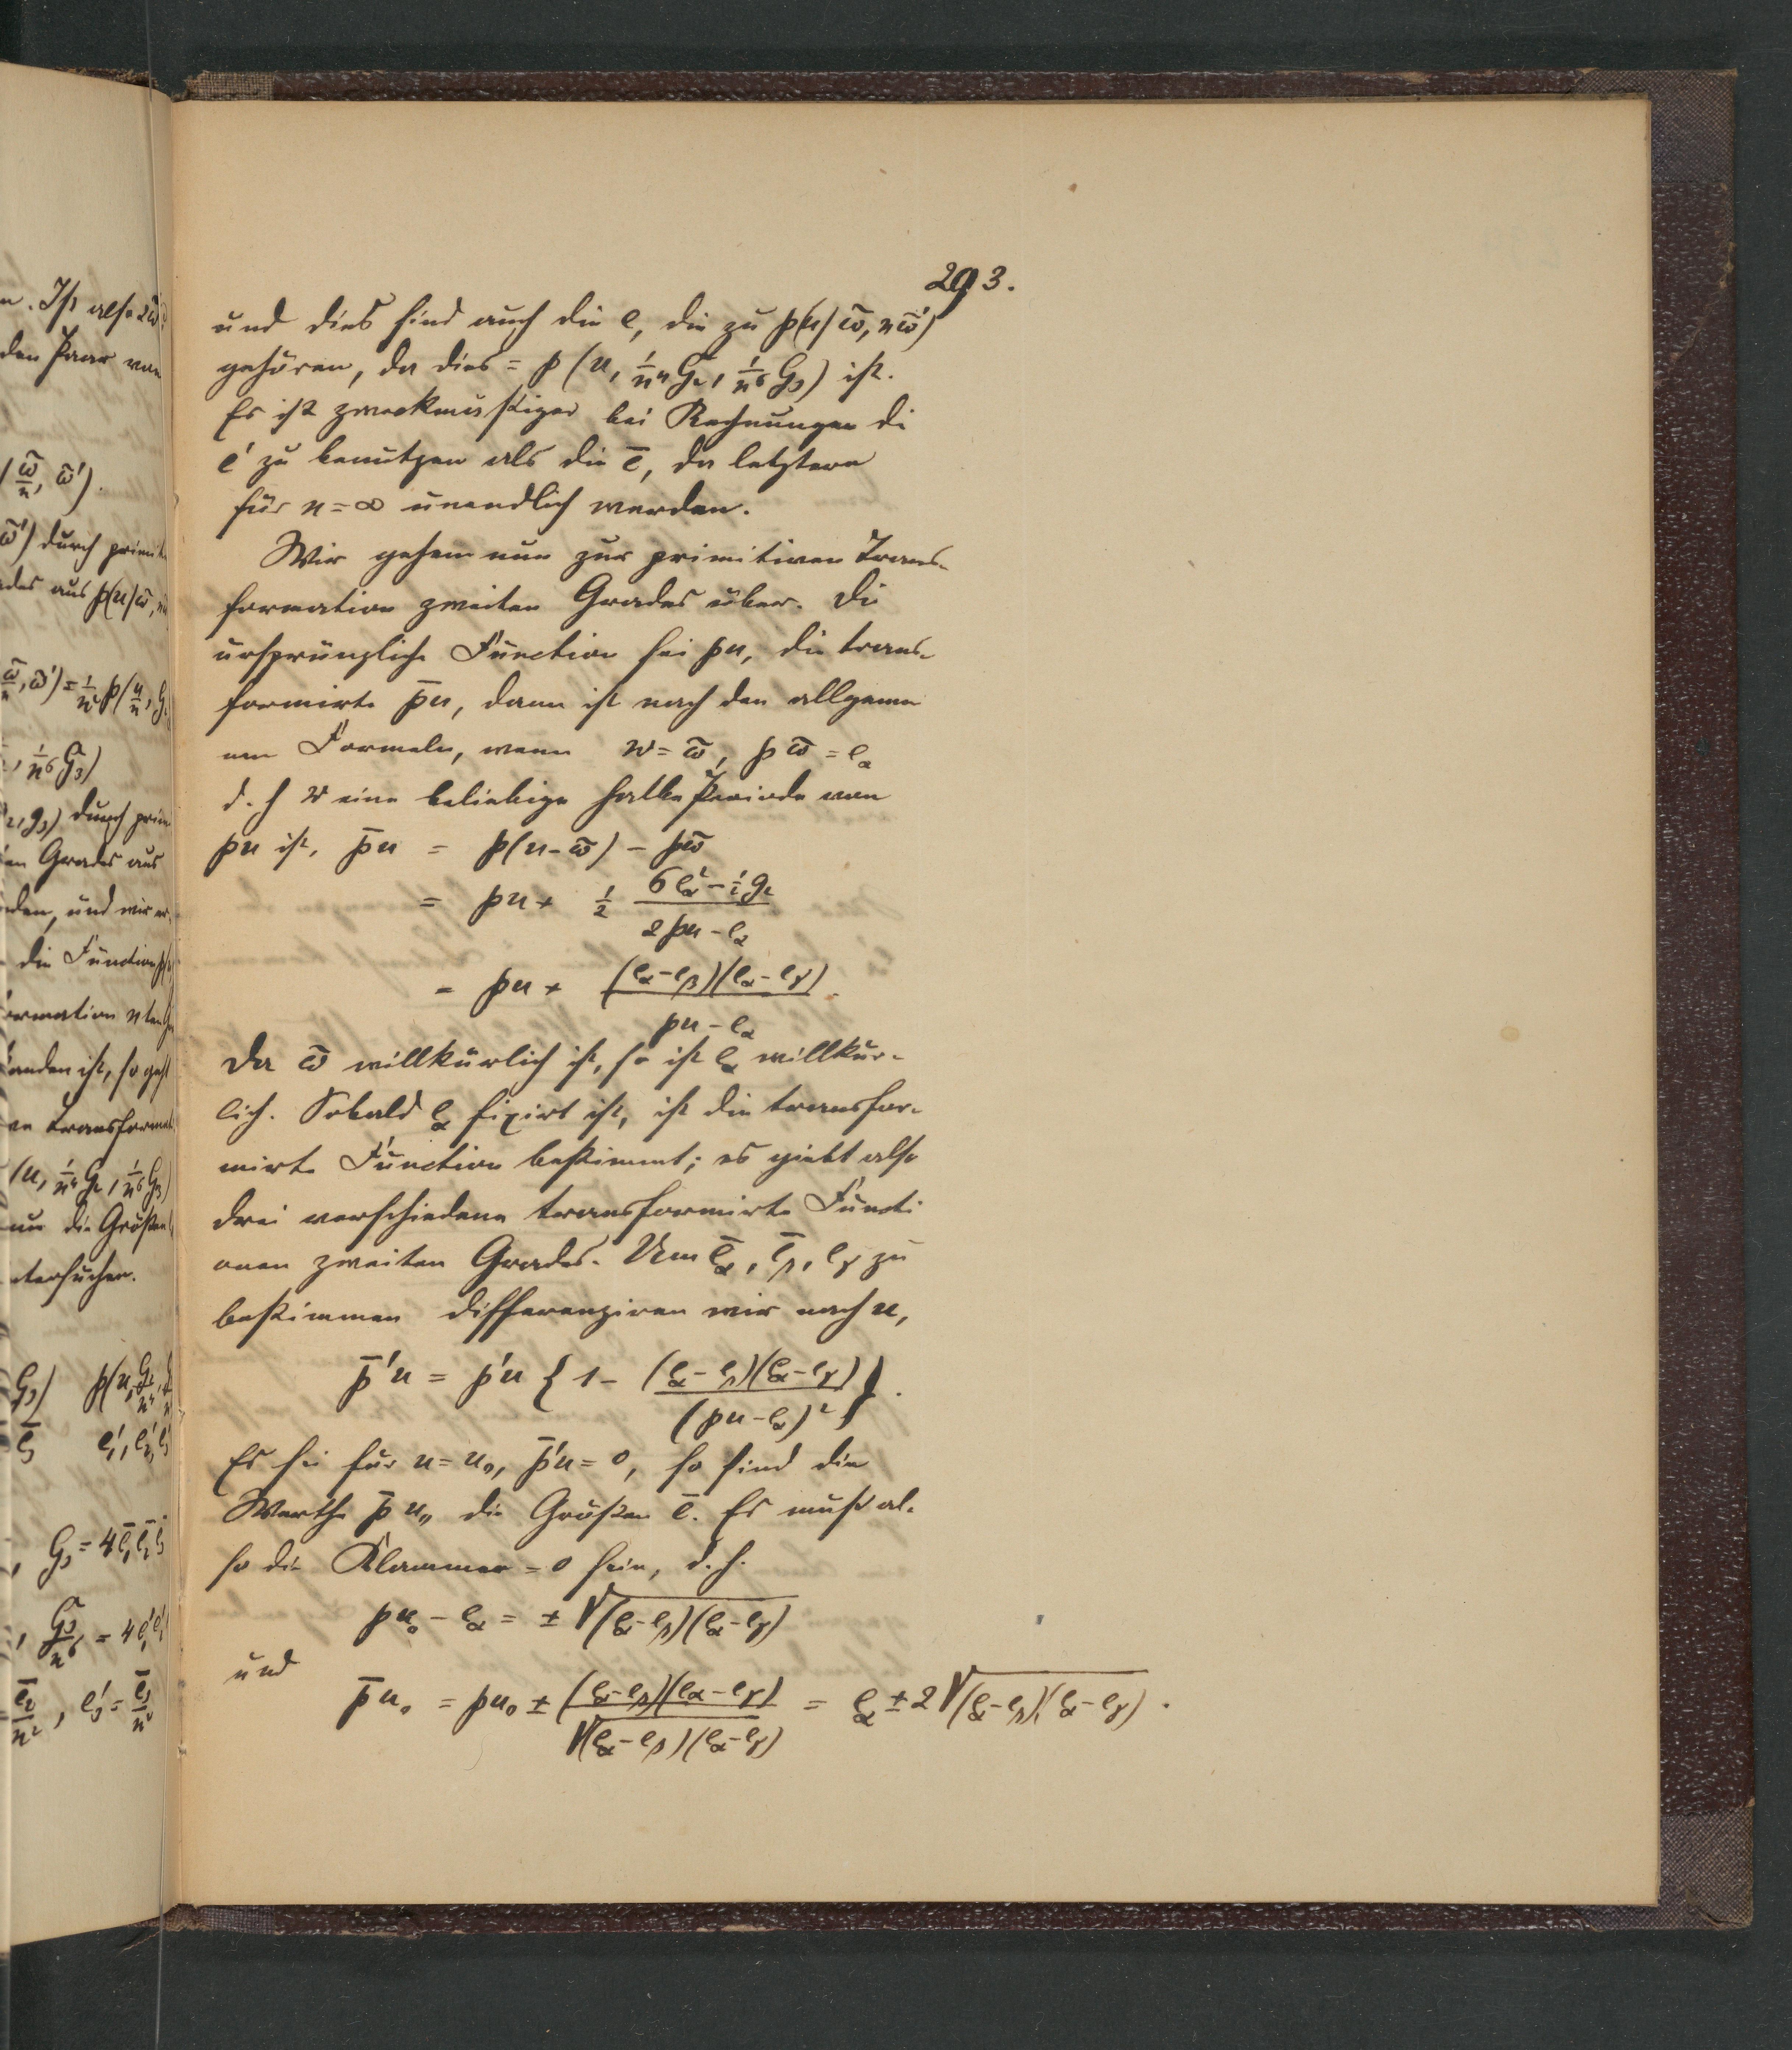 293.
und dies sind auch die e, die zu ℘(u/ω̃, nω̃')
gehören, da dies = ℘(u, 1/n⁴ G₂, 1/n⁶ G₃) ist.
Es ist zweckmäßiger bei Rechnungen die
e' zu benutzen als die e̅, da letztere
für n = ∞ unendlich werden.
Wir gehen nun zur primitiven Trans-
formation zweiten Grades über. Die
ursprüngliche Function sei ℘u, die trans-
formirte ℘̅u, dann ist nach den allgemei
nen Formeln, wenn w = ω̃, ℘ω̃ = e_α
d. h w eine beliebige halbe Periode von
℘u ist, ℘̅u = ℘(u-ω̃) - ℘ω̃
= ℘u + 1/2 (6e_α² - 1/2 g₂)/(2℘u - e_α)
= ℘u + (e_α - e_β)(e_α - e_γ)/(℘u - e_α).
Da ω̃ willkürlich ist, so ist e_α willkür-
lich. Sobald e_α fixirt ist, ist die transfor-
mirte Function bestimmt; es giebt also
drei verschiedene transformirte Functi
onen zweiten Grades. Um e̅_α, e̅_β, e_γ zu
bestimmen differenziren wir nach u,
℘̅'u = ℘'u {1 - (e_α - e_β)(e_α - e_γ)/(℘u - e_α)²}.
Es sei für u = u₀, ℘̅'u = 0, so sind die
Werthe ℘̅u₀ die Größen e̅. Es muß al-
so die Klammer = 0 sein, d. h.
℘u₀ - e_α = ± √(e_α - e_β)(e_α - e_γ)
und
℘̅u₀ = ℘u₀ ± (e_α - e_β)(e_α - e_γ)/√(e_α - e_β)(e_α - e_γ) = e_α ± 2√(e_α - e_β)(e_α - e_γ).